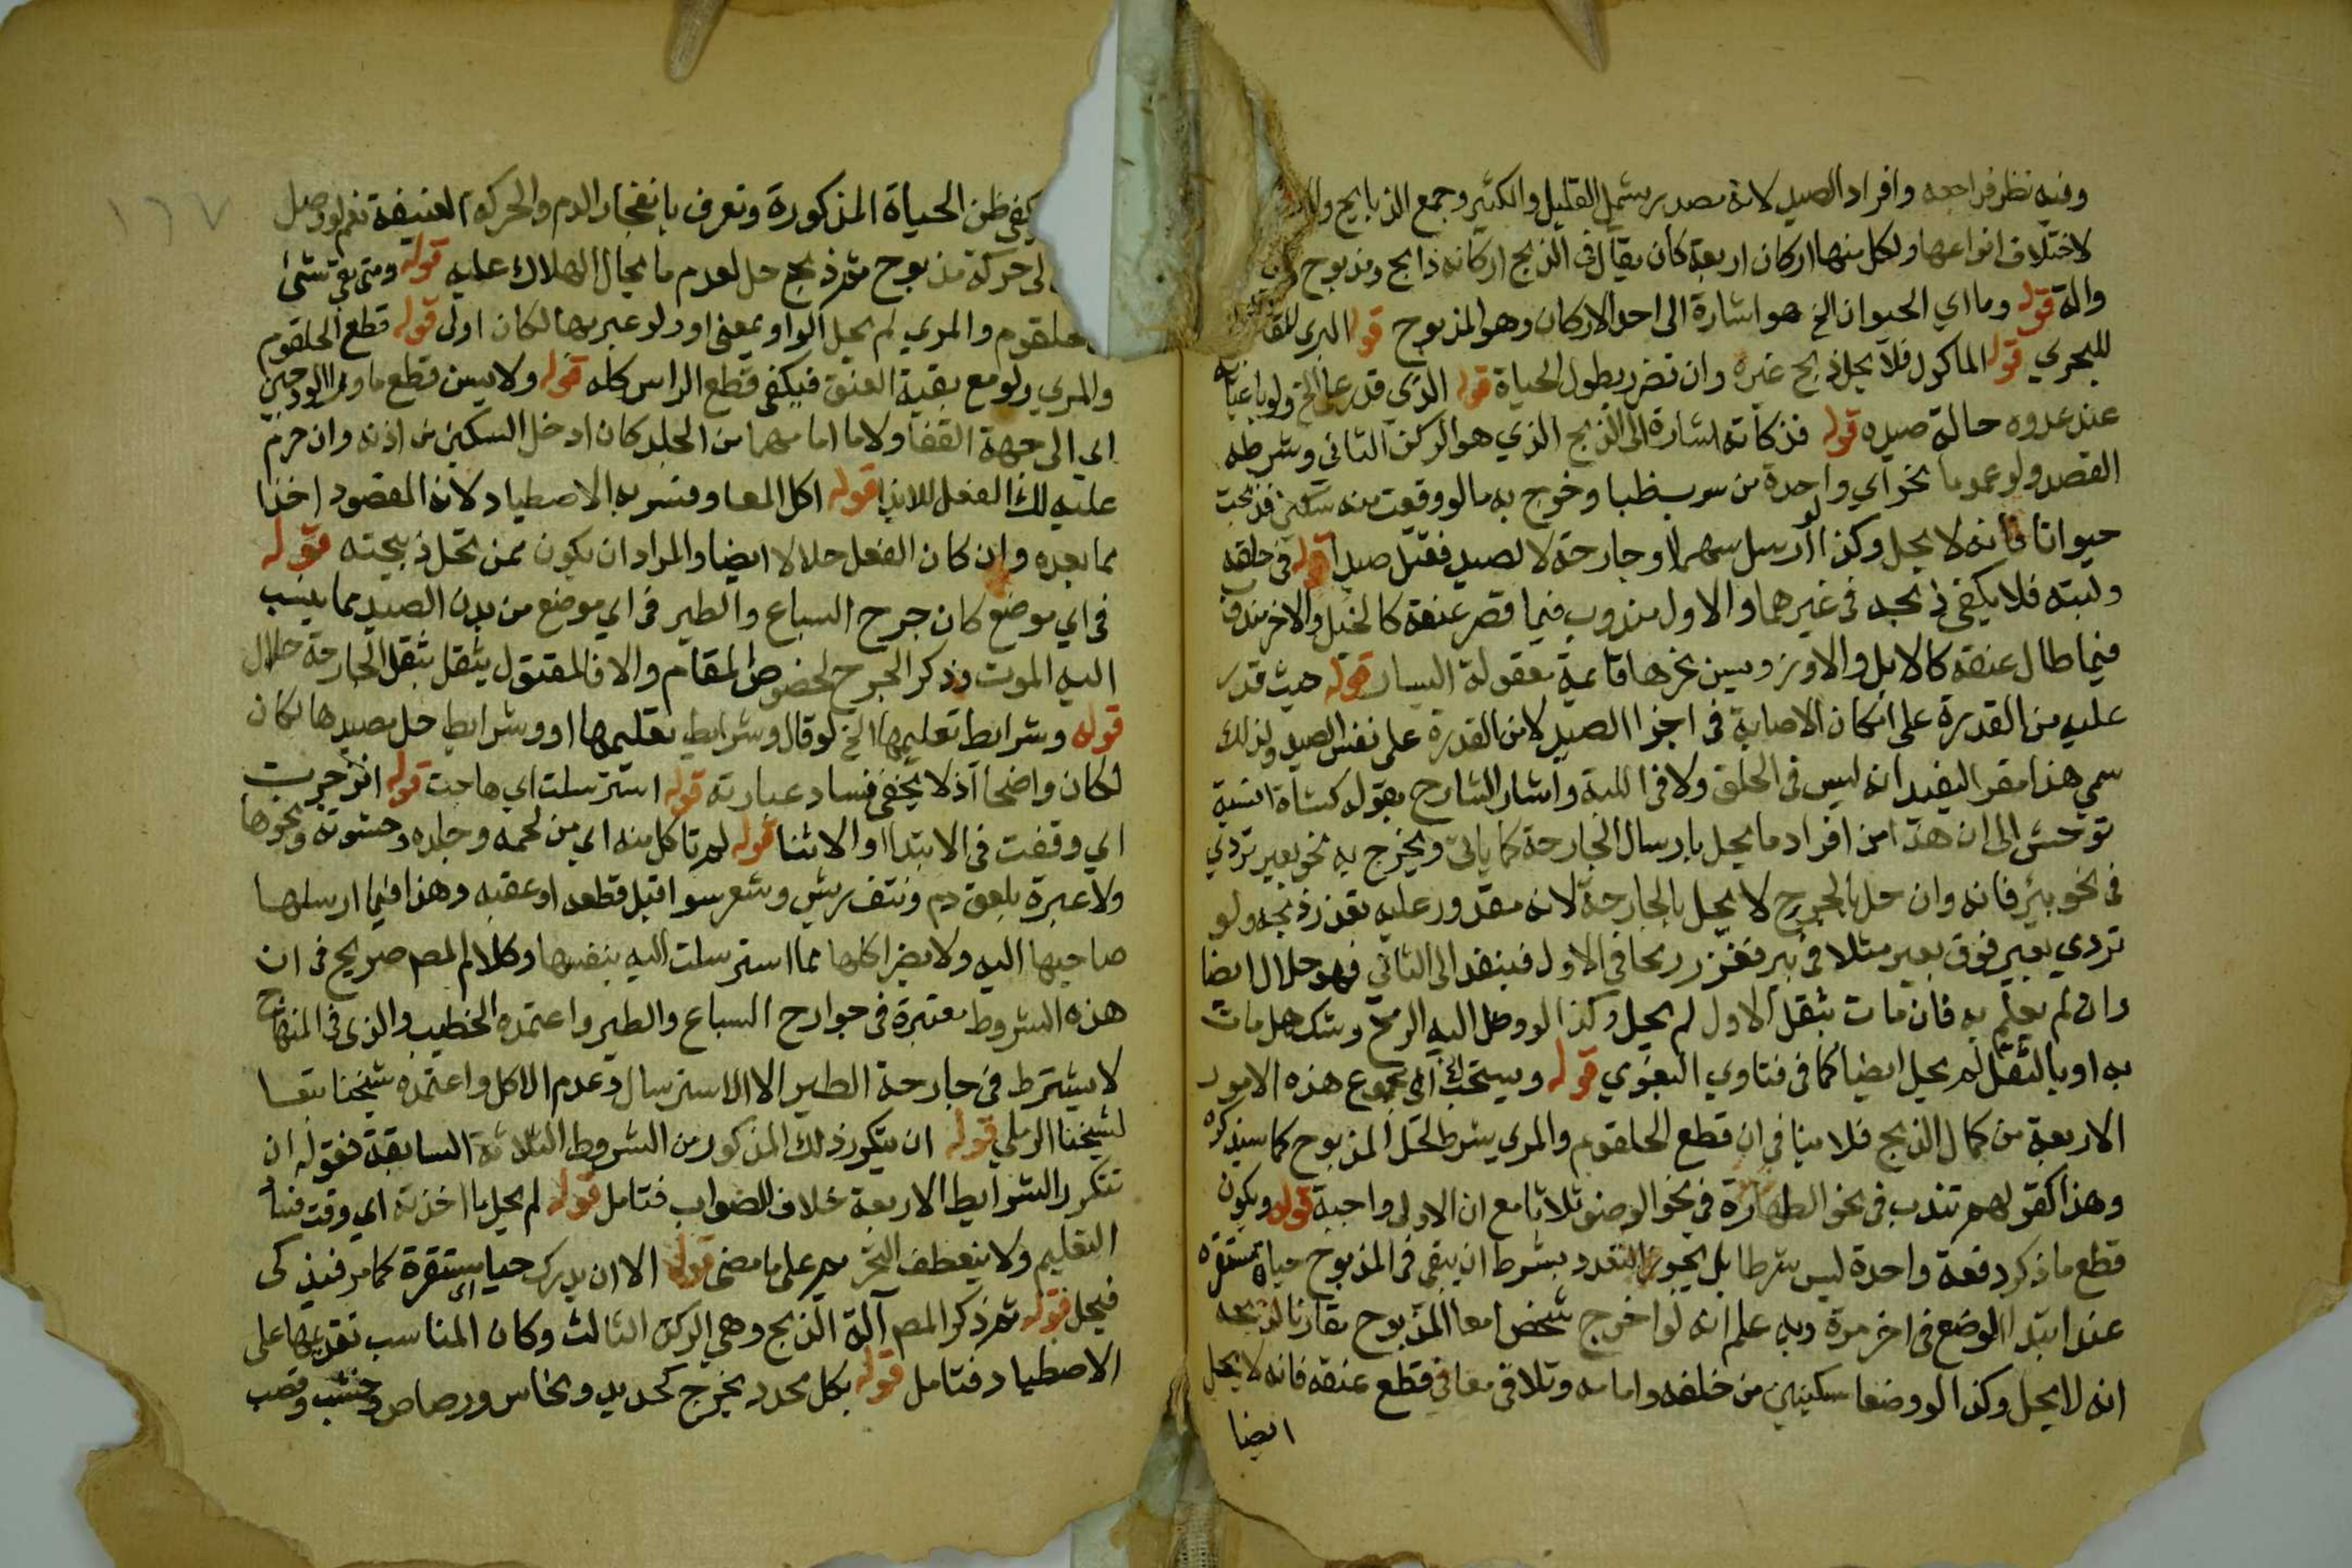 وفيه نظر فراجعه وافراد الصيد لانه مصدر يشمل القليل والكثير وجمع الذبايح
لاختلاف انواعها ولكل منها اركان اربعة كان يقال في الذبح اركانه ذابح ومذبوح
والة قوله وما اي الحيوان الخ هو اشارة الى احد الاركان وهو المذبوح قوله البري
للبحري قوله الماكول فلا يحل ذبح غيره وان تضرر بطول الحياة قوله الذي قدر على الخ ولو
عند عدوه حالة صيده قوله فذكاته اشارة الى الذبح الذي هو الركن الثاني وشرطه
القصد ولو عموما نحو اي واحدة من سرب ظبا وخرج به مالو وقعت منه سكين فذبحت
حيوانا فانه لا يحل وكذا لو ارسل سهما او جارحة لا لصيد فقتل صيدا قوله في حلقه
ولبته فلا يكفي ذبحه في غيرهما والاول مندوب فيما قصر عنقه كالخيل والاخر مندوب
فيما طال عنقه كالابل والاوز ويسن نحرها قايمة معقولة اليسار قوله حيث قدر
عليه من القدرة على امكان الاصابة في اجزا الصيد لا من القدرة على نفس الصيد ولذلك
سمي هذا مقر اليفيد انه ليس في الحلق ولا في اللبة واشار الشارح بقوله كشاة انسية
توحشت الى ان هذا من افراد ما يحل بارسال الجارحة كما ياتي ويخرج به نحو بعير تردي
في نحو بئر فانه وان حل بالجرح لا يحل بالجارحة لانه مقدور عليه تعذر ذبحه ولو
تردي بعير فوق بعير مثلا في بير فغرز رمحا في الاول فينفد الى الثاني فهو حلال ايضا
وان لم يعلم به فان مات بثقل الاول لم يحل وكذا لو وصل اليه الرمح وشك هل مات
به او بالثقل لم يحل ايضا كما في فتاوي البغوي قوله ويستحب اي مجموع هذه الامور
الاربعة من كمال الذبح فلا ينافي ان قطع الحلقوم والمري شرط لحل المذبوح كما سيذكره
وهذا كقولهم تندب في نحو الطهارة في نحو الوضو ثلاثا مع ان الاولى واجبة قوله ويكون
قطع ما ذكر دفعة واحدة ليس شرطا بل يجوز التعدد بشرط ان يبقى في المذبوح حياة مستقرة
عند ابتدا الوضع في اخر مرة وبه علم انه لو اخرج شخص امعا المذبوح مقارنا لذبحه
انه لا يحل وكذا لو وضعا سكينين من خلفه وامامه وتلاقى معا في قطع عنقه فانه لا يحل
ايضا
١٦٧
يكفي ظن الحياة المذكورة وتعرف بانفجار الدم والحركة العنيفة نعم لو وصل
حركة مذبوح ثم ذبح حل لعدم ما يحال الهلاك عليه قوله ومتى بقي شئ
حلقوم والمري لم يحل الواو بمعنى او ولو عبر بها لكان اولى قوله قطع الحلقوم
والمري ولو مع بقية العنق فيكفي قطع الراس كله قوله ولا يسن قطع ما ورا الودجين
اي الى جهة القفا ولا ما امامهما من الجلد كان ادخل السكين من اذنه وان حرم
عليه ذلك الفعل للايذا قوله اكل المصا وفسر به الاصطياد لانه المقصود اخذا
مما بعده وان كان الفعل حلالا ايضا والمراد ان يكون ممن تحل ذبيحته قوله
في اي موضع كان جرح السباع والطير في اي موضع من بدن الصيد مما ينسب
اليه الموت وذكر الجرح لخصوص المقام والا فالمقتول بثقل الجارحة حلال
قوله وشرايط تعليمها الخ لو قال وشرايط تعليمها او وشرايط حل مصيدها لكان
لكان واضحا اذ لا يخفى فساد عبارته قوله استرسلت اي هاجت قوله انزجرت
اي وقفت في الابتدا او الاثنا قوله لم تاكل منه اي من لحمه وجلده وحشوته ونحوها
ولا عبرة بلعق دم ونتف ريش وشعر سوا قبل قطعه او عقبه وهذا فيما ارسلها
صاحبها اليه ولا يضر اكلها مما استرسلت اليه بنفسها وكلام المصـ صريح في ان
هذه الشروط معتبرة في جوارح السباع والطير واعتمده الخطيب والذي في المنهاج
لا يشترط في جارحة الطير الا الاسترسال وعدم الاكل واعتمده شيخنا تبعا
لشيخنا الرملي قوله ان يتكرر ذلك المذكور من الشروط الثلاثة السابقة فقوله ان
تتكرر الشرايط الاربعة خلاف للصواب فتامل قوله لم يحل ما اخذته اي وقت
التعليم ولا ينعطف التحريم على ما مضى قوله الا ان يدرك حيا اي مستقرة كما مر فيذكى
فيحل قوله ثم ذكر المصـ آلة الذبح وهي الركن الثالث وكان المناسب تقديمها على
الاصطياد فتامل قوله بكل محدد يخرج كحديد ونحاس ورصاص وخشب وقصب